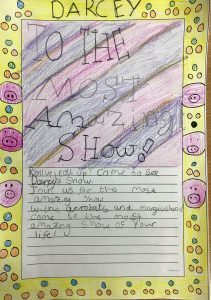 DARCEY
TO THE
MOST
AMaZing
SHOW!
Roll up, roll up! Came to see
Darcys Show.
Join us for the most
amazing show
With acrobats and magicians
Came to the most
amazing show of your
life!